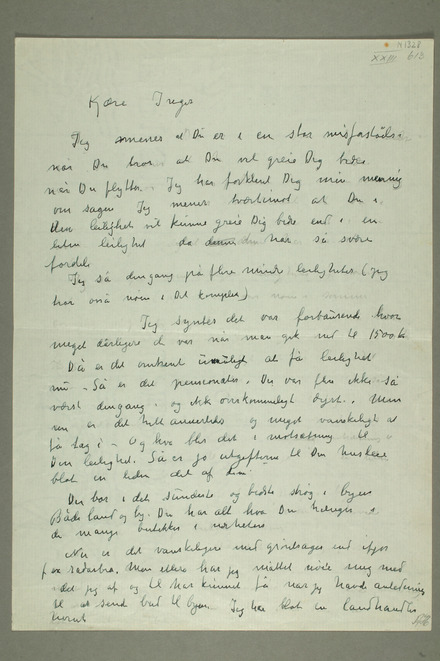 N 1328
XXIII 613
Kjære Inger
Jeg mener at Du er i en stor misforståelse
når Du tror at Du vil greie Dig bedre
når Du flytter. Jeg har forklart Dig min mening
om sagen Jeg mener tvertimot at Du i
den leilighet vil kunne greie Dig bedre end i en
liten leilighet da denne har så svære
fordele
Jeg så dengang på flere mindre leiligheter (jeg
har også noen i det kompleks)
Jeg syntes det var forbausende hvor
meget dårligere de var når man gik ned til 1500 kr
Då er det omtrent umuligt at få leilighet
nu – Så er det pensionater. Der var flere ikke så
værst dengang og ikke dyrt. Men
nu er det helt anderledes og meget vanskeligt at
få tag i – Og hva blir det i motsætning til
Din leilighet. Så er jo utgifterne til Din husleie
blot en liten del af
Du bor i det sundeste og bedste strøg i byen
Både land og by. Du har alt hva Du trænger i
de mange butikker i nærheten
Nu er det vanskeligere med end ifjor
for Men ellers har jeg måttet nøie mig med
det jeg og til har kunnet få når jeg havde anledning
til at sende bud til byen. Jeg har blot en landhandler